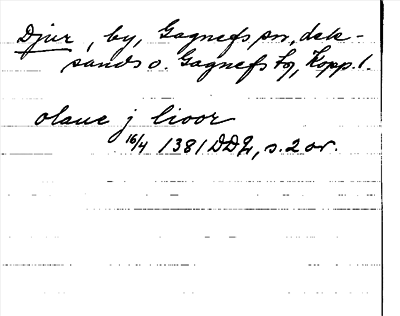 Djur, by, Gagnefs sn, Lek-
sands o. Gagnefs tg, Kopp. l.
olaue j lioor
16/4 1381 DD2, s. 2 or.